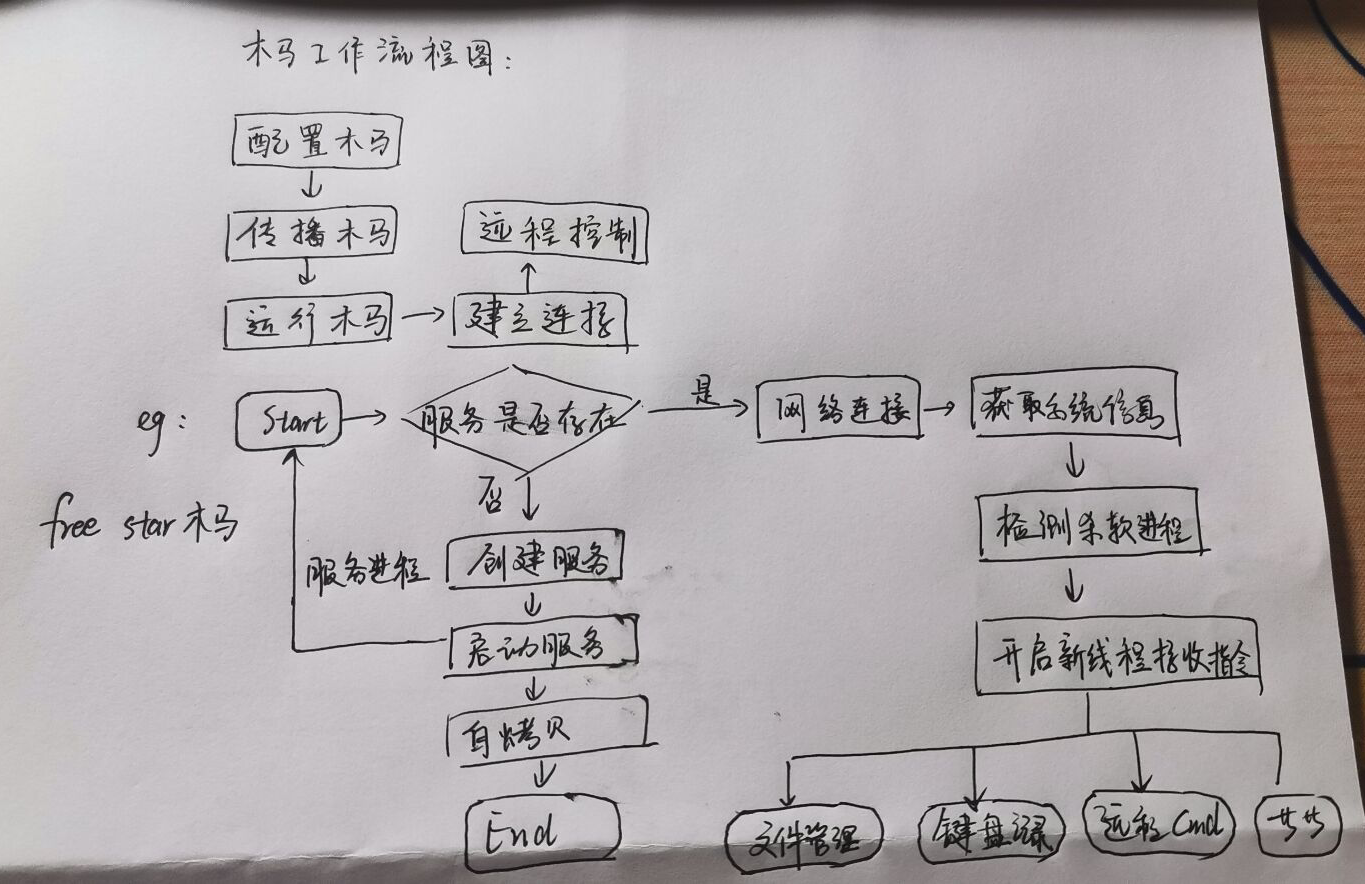 木马工作流程图:
配置木马
传播木马
远程控制
运行木马
建立连接
eg:
Start
服务是否存在
是
网络连接
获取系统信息
否
检测杀软进程
free star木马
服务进程
创建服务
启动服务
开启新线程接收指令
自烤贝
End
文件管理
键盘记录
远程Cmd